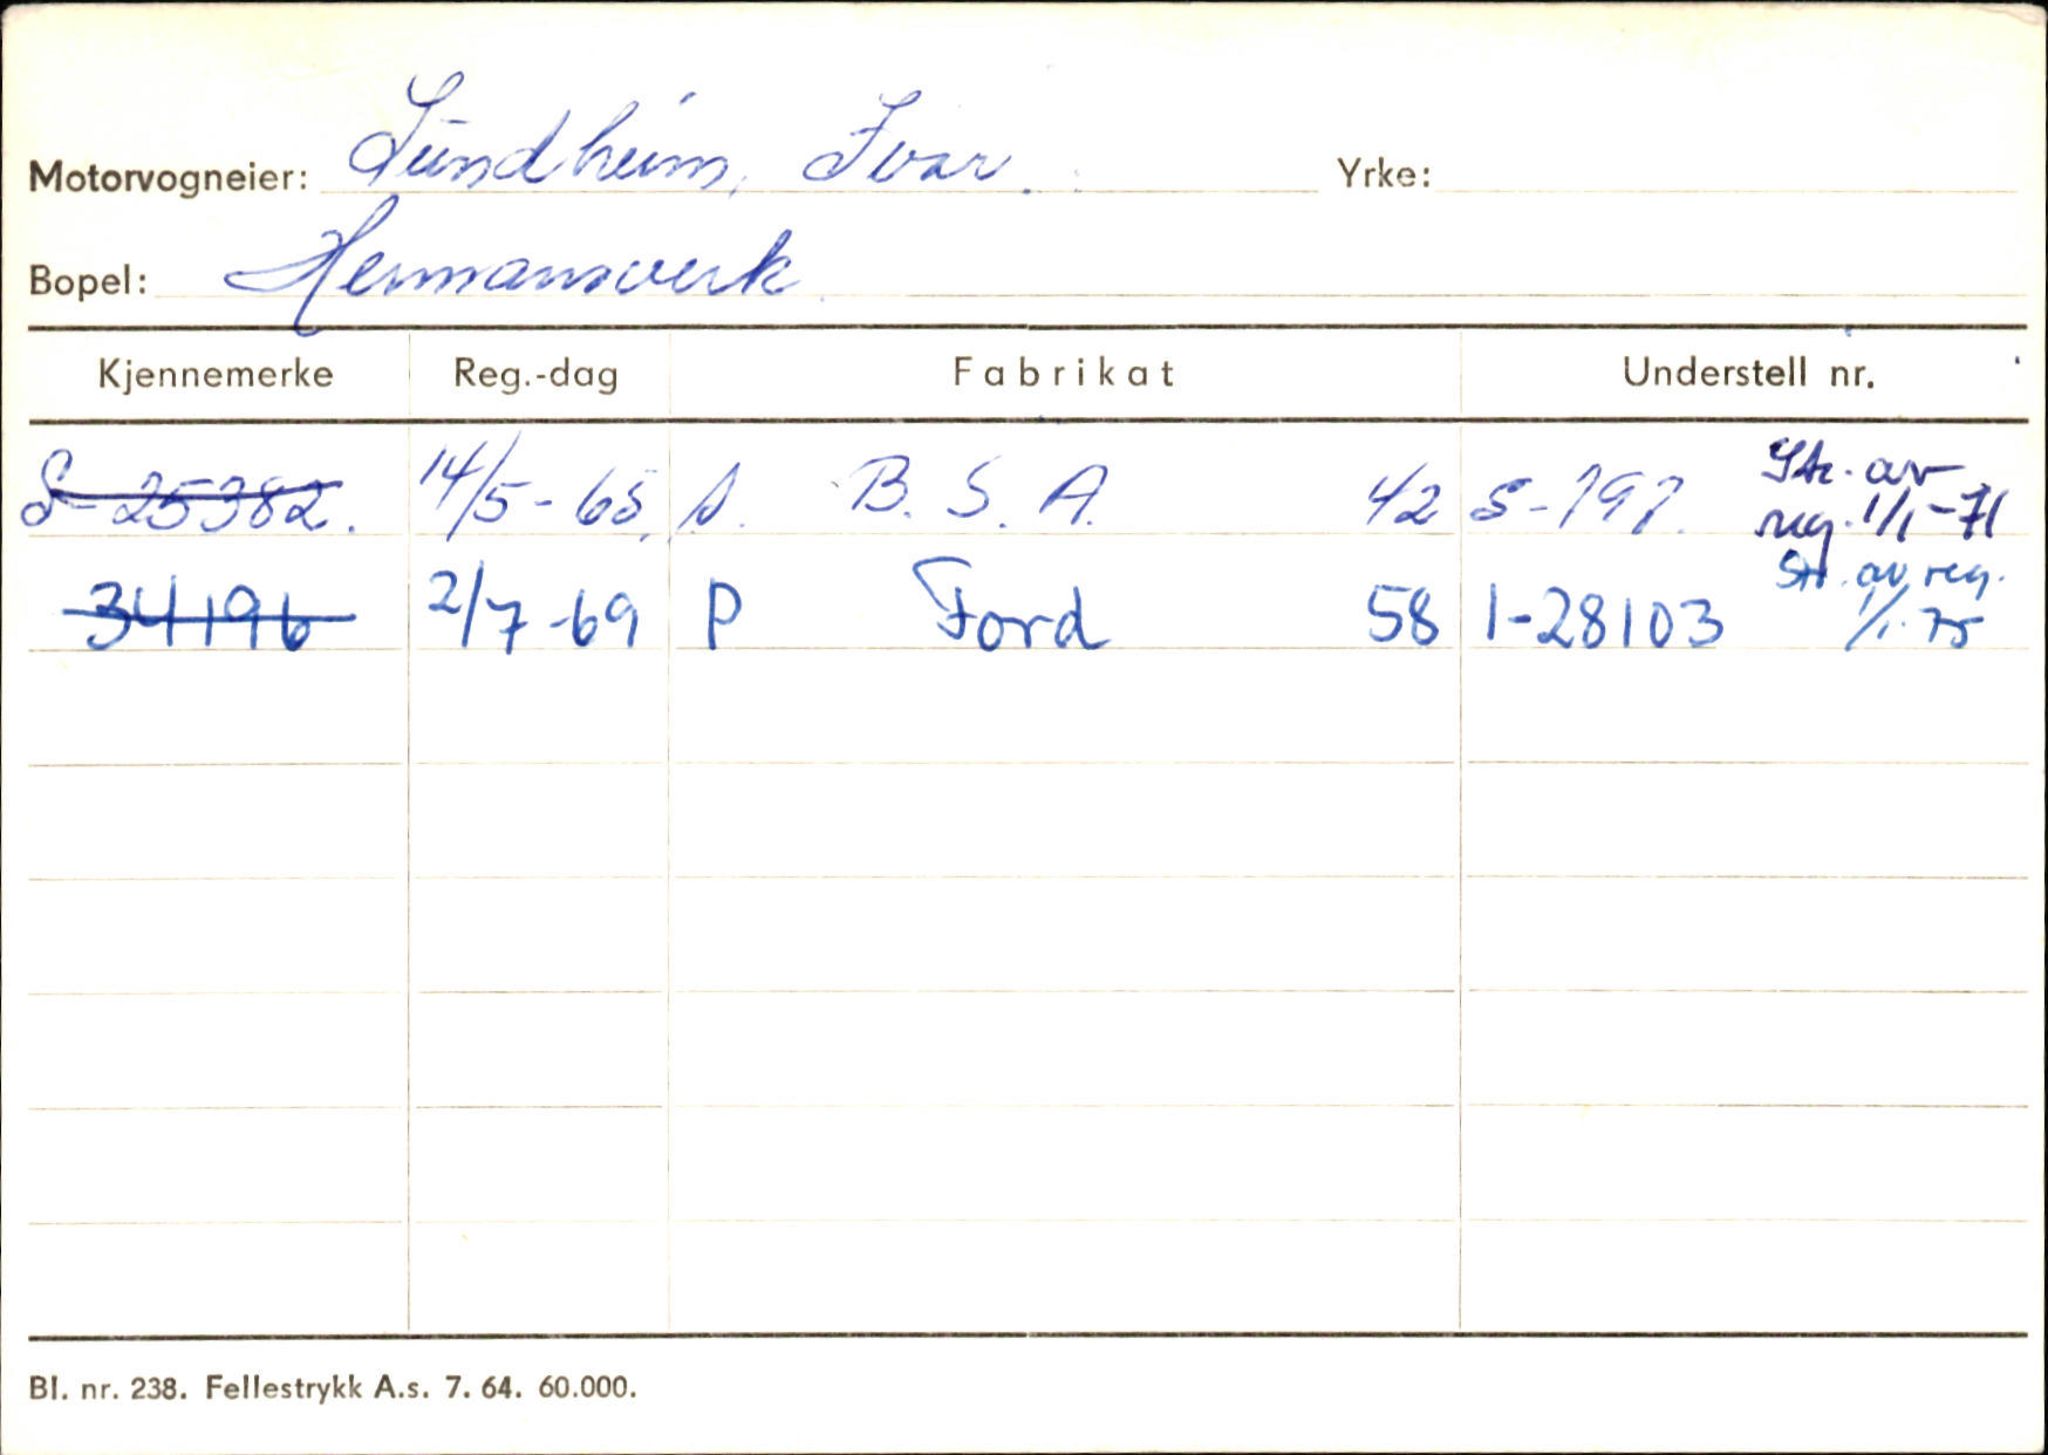 Motorvogneier: Sundheim, Ivar. Yrke:
Bopel: Hermansverk.
Kjennemerke Reg.-dag Fabrikat Understell nr.
S-25382. 14/5-65. B. S. A. 42 S-797. Str. av
reg. 1/1-71
34196 2/7-69 P Ford 58 1-28103 Str. av reg.
1/1-75
Bl. nr. 238. Fellestrykk A.s. 7. 64. 60.000.